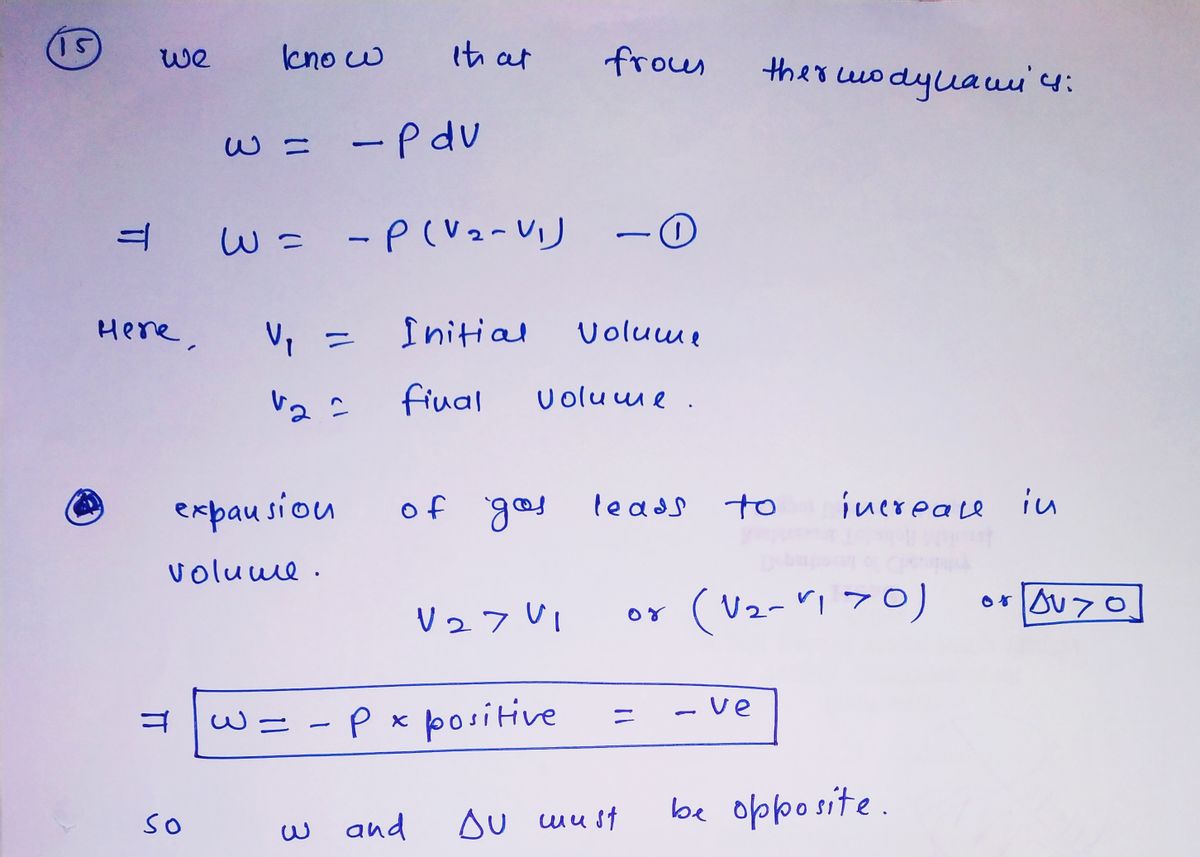 15 we know that from thermodynamics:
w = - P dV
⇒ w = - P (V2 - V1) - ①
Here, V1 = Initial volume
V2 = final volume.
expansion of gas leads to increase in
volume.
V2 > V1 or (V2 - V1 > 0) or ΔV > 0
⇒ w = - P × positive = - ve
so w and ΔV must be opposite.